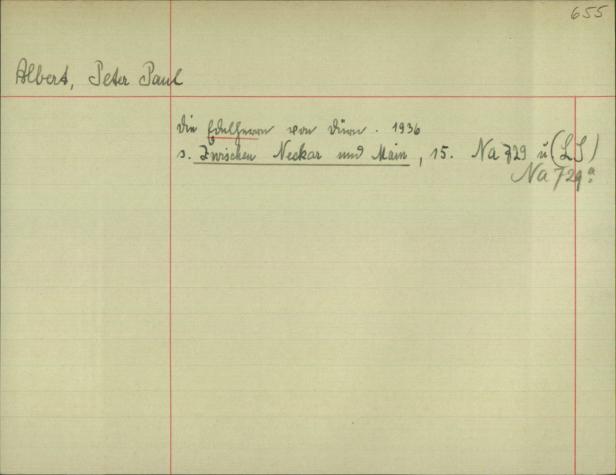 655
Albert, Peter Paul
Die Edelherren von Dürn. 1936
s. Zwischen Neckar und Main, 15. Na 729 u (LS)
Na 729a